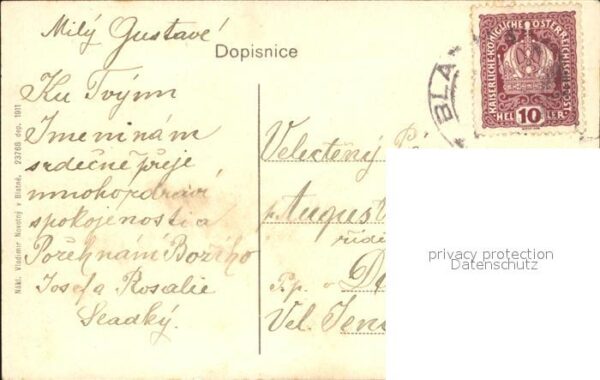 Milý Gustavé
Dopisnice
Ku Tvým
Jmeninám
srdečně přeje
mnoho zdraví
spokojenosti a
Požehnání Božího
Josef a Rosalie
Sladký.
Nákl. Vladimír Novotný v Blatné, 23768 dep. 1911
BLA
KAISERLICHE KÖNIGLICHE ÖSTERREICHISCHE POST
HELLER
10
Velectěný P
p. August
řídí
Pp. v
Vel. Jen
privacy protection
Datenschutz